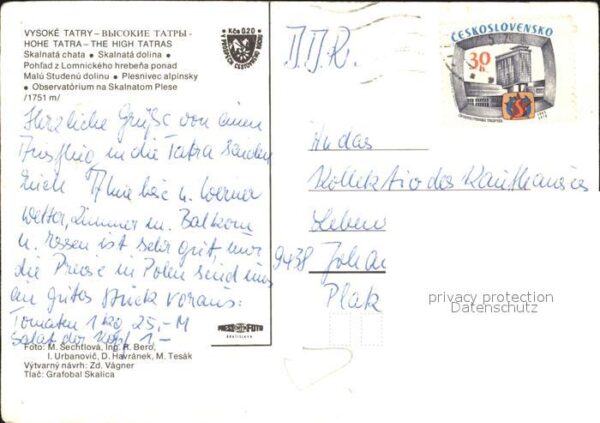 VYSOKÉ TATRY – ВЫСОКИЕ ТАТРЫ -
HOHE TATRA – THE HIGH TATRAS
Skalnatá chata • Skalnatá dolina •
Pohľad z Lomnického hrebeňa ponad
Malú Studenú dolinu • Plesnivec alpínsky
• Observatórium na Skalnatom Plese
/1751 m/
Kčs 0,20
Herzliche Grüße von einem
Ausflug in die Tatra senden
Euch u. Werner
Wetter, Zimmer m. Balkon
u. Essen ist sehr gut, nur
die Preise in Polen sind uns
ein gutes Stück voraus:
Tomaten 1 kg 25,-M
Salat der Kopf 1.-
PRESSFOTO
BRATISLAVA
Foto: M. Šechtlová, Ing. R. Bero,
I. Urbanovič, D. Havránek, M. Tesák
Výtvarný návrh: Zd. Vágner
Tlač: Grafobal Skalica
ČESKOSLOVENSKO
30 h
An das
Kollektiv des Kaufhauses
9438
Platz
privacy protection
Datenschutz